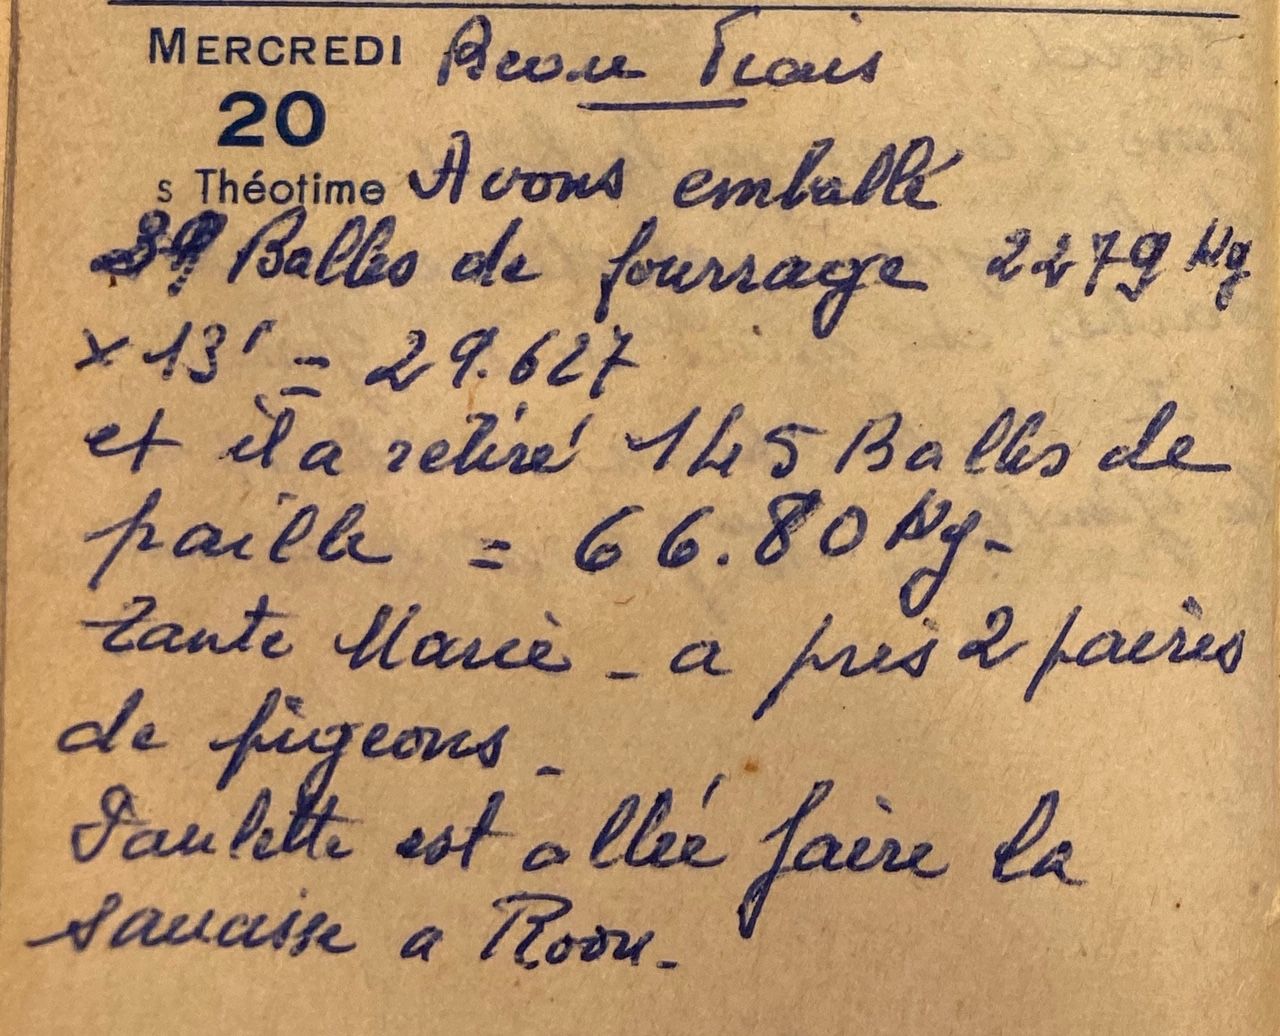 MERCREDI
20
s Théotime
Brou Frais
Avons emballé
39 Balles de fourrage 2279 Kg
x 13' = 29.627
et il a retiré 145 Balles de
paille = 66.80 Kg-
tante Marie - a pris 2 paires
de pigeons -
Paulette est allée faire la
a